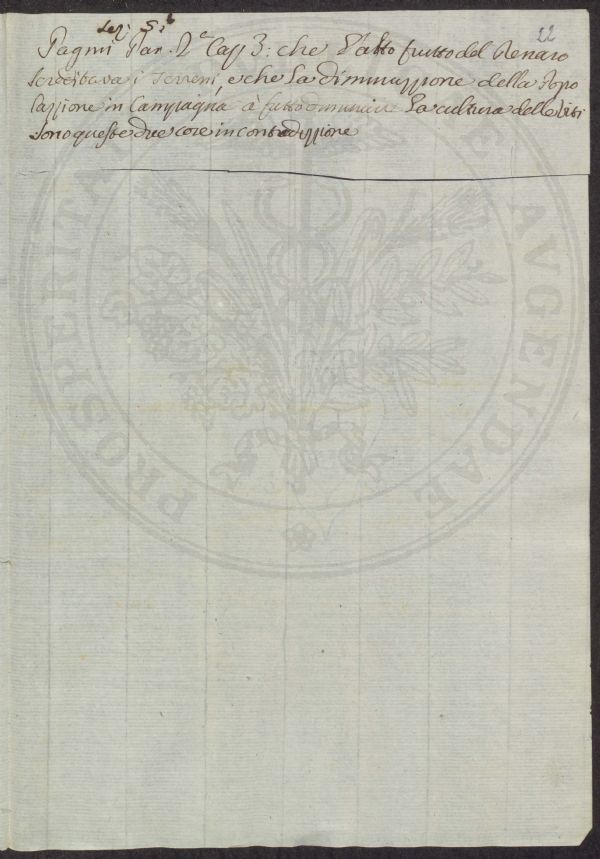 22
Pagnini Par. 2.ª Cap 3: che l'alto frutto del Denaro
steriliva i terreni, e che La diminuzzione della Popo
lazzione in Campagna à fatto diminuire La cultura delle Viti
sono queste due cose in contradizzione
PROSPERITATI PUBLICAE AVGENDAE